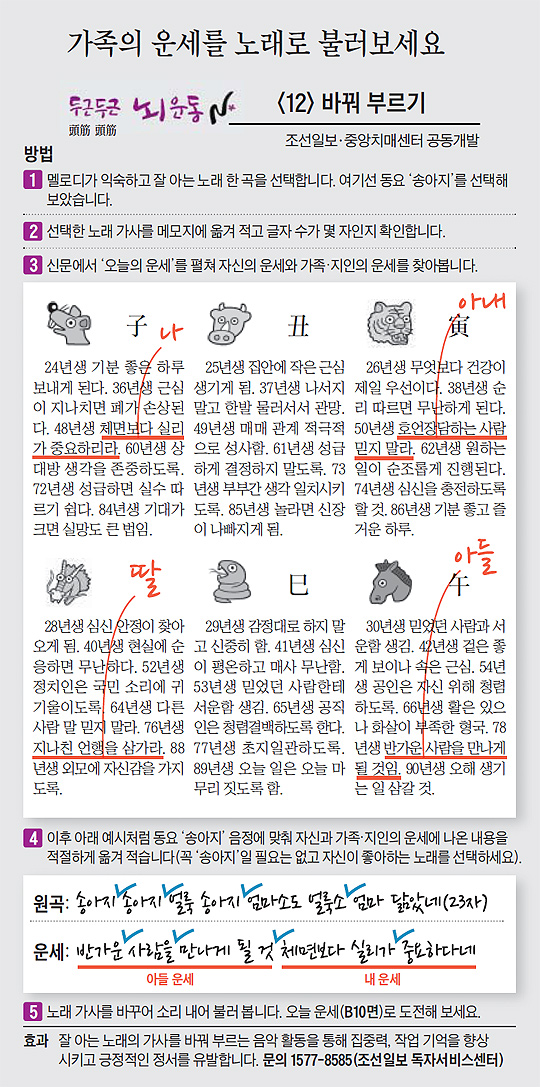 가족의 운세를 노래로 불러보세요
두근두근 뇌운동
頭筋 頭筋
〈12〉 바꿔 부르기
조선일보·중앙치매센터 공동개발
방법
1 멜로디가 익숙하고 잘 아는 노래 한 곡을 선택합니다. 여기선 동요 ‘송아지’를 선택해
보았습니다.
2 선택한 노래 가사를 메모지에 옮겨 적고 글자 수가 몇 자인지 확인합니다.
3 신문에서 ‘오늘의 운세’를 펼쳐 자신의 운세와 가족·지인의 운세를 찾아봅니다.
子 나
24년생 기분 좋은 하루
보내게 된다. 36년생 근심
이 지나치면 폐가 손상된
다. 48년생 체면보다 실리
가 중요하리라. 60년생 상
대방 생각을 존중하도록.
72년생 성급하면 실수 따
르기 쉽다. 84년생 기대가
크면 실망도 큰 법임.
丑
25년생 집안에 작은 근심
생기게 됨. 37년생 나서지
말고 한발 물러서서 관망.
49년생 매매 관계 적극적
으로 성사함. 61년생 성급
하게 결정하지 말도록. 73
년생 부부간 생각 일치시키
도록. 85년생 놀라면 신장
이 나빠지게 됨.
아내
寅
26년생 무엇보다 건강이
제일 우선이다. 38년생 순
리 따르면 무난하게 된다.
50년생 호언장담하는 사람
믿지 말라. 62년생 원하는
일이 순조롭게 진행된다.
74년생 심신을 충전하도록
할 것. 86년생 기분 좋고 즐
거운 하루.
딸
28년생 심신 안정이 찾아
오게 됨. 40년생 현실에 순
응하면 무난하다. 52년생
정치인은 국민 소리에 귀
기울이도록. 64년생 다른
사람 말 믿지 말라. 76년생
지나친 언행을 삼가라. 88
년생 외모에 자신감을 가지
도록.
巳
29년생 감정대로 하지 말
고 신중히 함. 41년생 심신
이 평온하고 매사 무난함.
53년생 믿었던 사람한테
서운함 생김. 65년생 공직
인은 청렴결백하도록 한다.
77년생 초지일관하도록.
89년생 오늘 일은 오늘 마
무리 짓도록 함.
아들
午
30년생 믿었던 사람과 서
운함 생김. 42년생 겉은 좋
게 보이나 속은 근심. 54년
생 공인은 자신 위해 청렴
하도록. 66년생 활은 있으
나 화살이 부족한 형국. 78
년생 반가운 사람을 만나게
될 것임. 90년생 오해 생기
는 일 삼갈 것.
4 이후 아래 예시처럼 동요 ‘송아지’ 음정에 맞춰 자신과 가족·지인의 운세에 나온 내용을
적절하게 옮겨 적습니다(꼭 ‘송아지’일 필요는 없고 자신이 좋아하는 노래를 선택하세요).
원곡: 송아지 송아지 얼룩 송아지 엄마소도 얼룩소 엄마 닮았네(23자)
운세: 반가운 사람을 만나게 될 것 체면보다 실리가 중요하다네
아들 운세 내 운세
5 노래 가사를 바꾸어 소리 내어 불러 봅니다. 오늘 운세(B10면)로 도전해 보세요.
효과 잘 아는 노래의 가사를 바꿔 부르는 음악 활동을 통해 집중력, 작업 기억을 향상
시키고 긍정적인 정서를 유발합니다. 문의 1577-8585(조선일보 독자서비스센터)